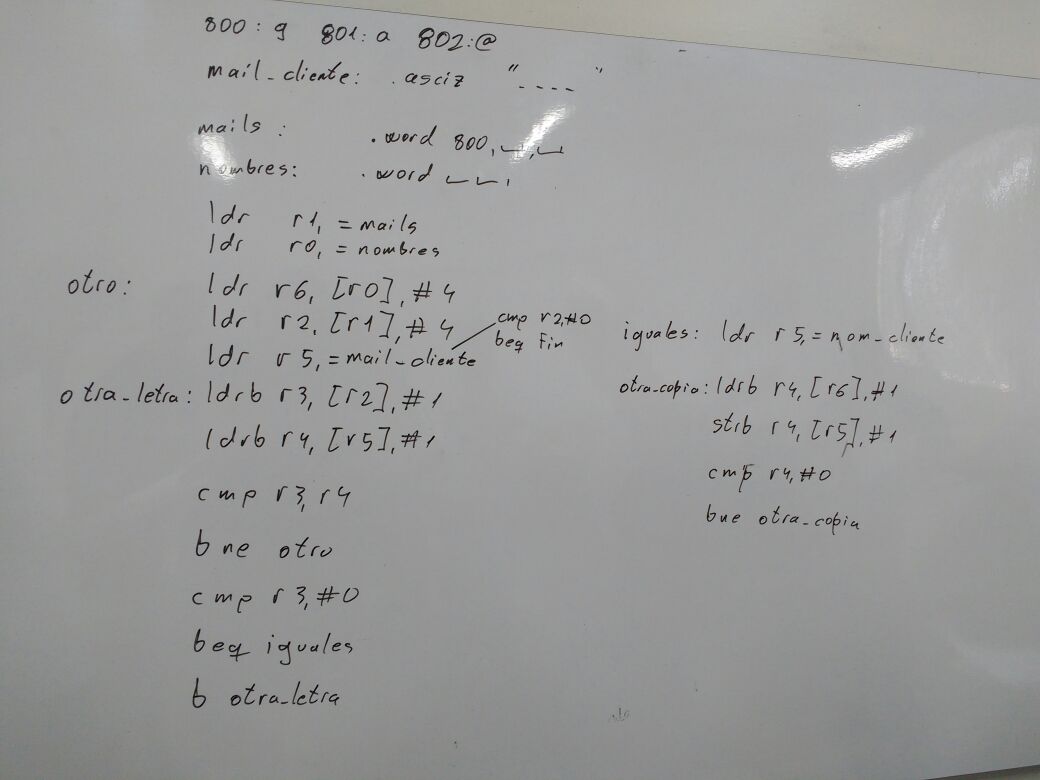 800 : g 801: a 802:@
mail_cliente: .asciz "----"
mails : .word 800,
nombres: .word
ldr r1, = mails
ldr r0, = nombres
otro: ldr r6, [r0], #4
ldr r2, [r1], #4
cmp r2,#0
beq Fin
ldr r5, = mail_cliente
otra_letra: ldrb r3, [r2], #1
ldrb r4, [r5], #1
cmp r3, r4
bne otro
cmp r3, #0
beq iguales
b otra_letra
iguales: ldr r5, = nom_cliente
otra_copia: ldrb r4, [r6], #1
strb r4, [r5], #1
cmp r4, #0
bne otra_copia